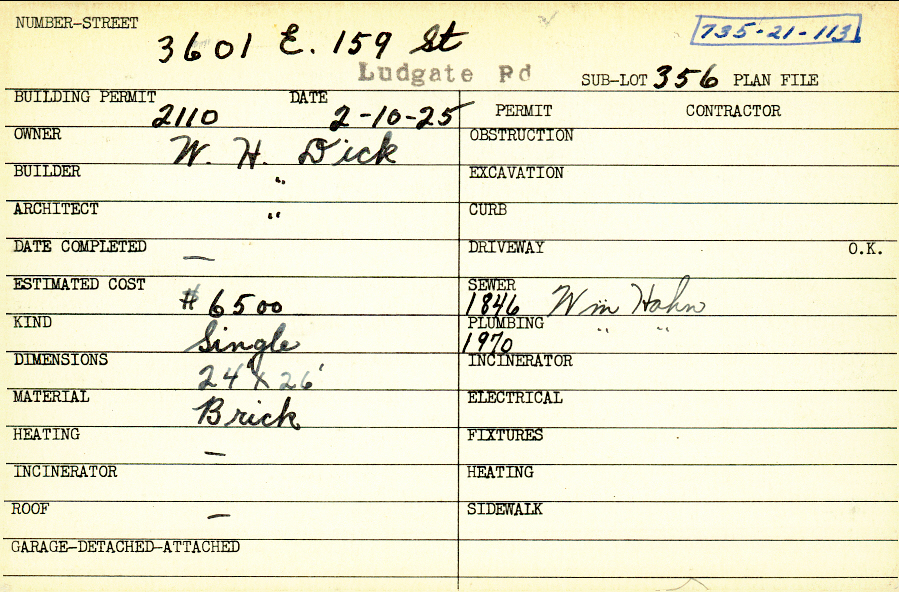 NUMBER-STREET
3601 E. 159 St
735-21-113
Ludgate Rd
SUB-LOT 356 PLAN FILE
BUILDING PERMIT DATE
2110 2-10-25
PERMIT CONTRACTOR
OWNER W. H. Dick
BUILDER "
ARCHITECT "
DATE COMPLETED —
ESTIMATED COST $6500
KIND Single
DIMENSIONS 24' X 26'
MATERIAL Brick
HEATING —
INCINERATOR
ROOF —
GARAGE-DETACHED-ATTACHED
OBSTRUCTION
EXCAVATION
CURB
DRIVEWAY O.K.
SEWER
1846 Wm Hahn
PLUMBING " "
1970
INCINERATOR
ELECTRICAL
FIXTURES
HEATING
SIDEWALK